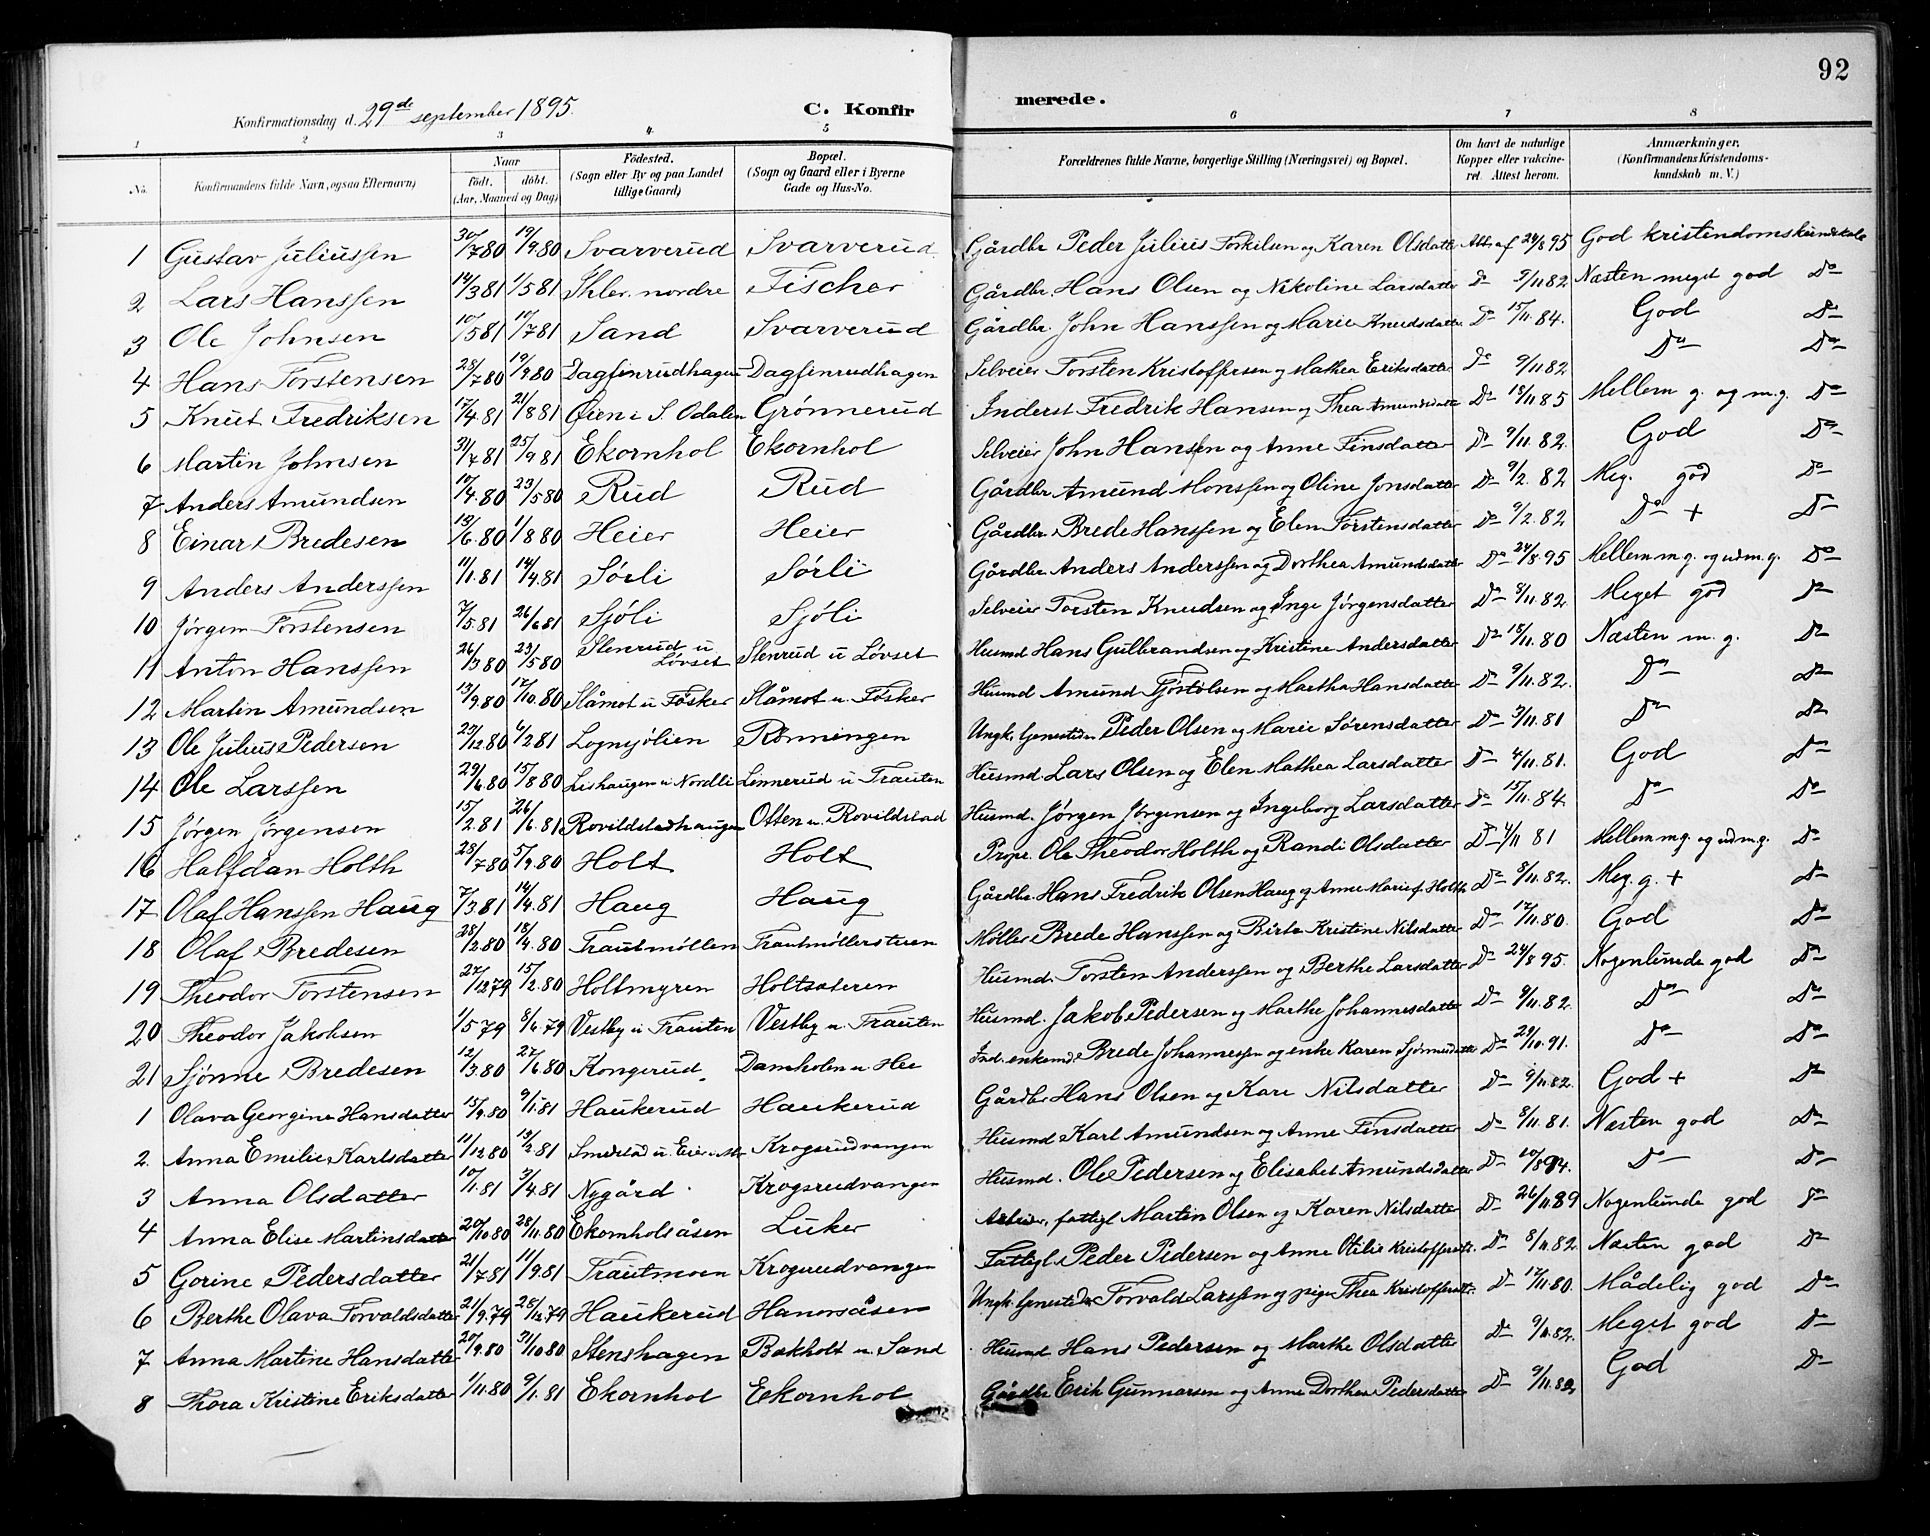 92
Konfirmationsdag d. 29de september 1895. C. Konfir merede.
1 2 3 4 5 6 7 8
No. Konfirmandens fulde Navn, ogsaa Efternavn) Naar födt. döbt. (Aar, Maaned og Dag) Födested. (Sogn eller By og paa Landet tillige Gaard) Bopæl. (Sogn og Gaard eller i Byerne Gade og Hus-No. Forældrenes fulde Navne, borgerlige Stilling (Næringsvei) og Bopæl. Om havt de naturlige Kopper eller vakcineret. Attest herom. Anmærkninger. (Konfirmandens Kristendomskundskab m. V.)
1 Gustav Juliussen 30/7 80 19/9 80 Svarverud Svarverud Gårdbr. Peder Julius Torkilsen og Karen Olsdatter Att. af 24/8 95 God kristendomskundskab
2 Lars Hanssen 14/3 81 1/5 81 nordre Fischer Gårdbr. Hans Olsen og Nikoline Larsdatter Do 9/11 82 Næsten meget god Do
3 Ole Johnsen 10/5 81 10/7 81 Sand Svarverud Gårdbr. John Hanssen og Marie Knudsdatter Do 15/11 84. God Do
4 Hans Torstensen 23/7 80 19/9 80 Dagfinrudhagen Dagfinrudhagen Selveier Torsten Kristoffersen og Mathea Eriksdatter Do 9/11 82 Do Do
5 Knut Fredriksen 17/4 81 21/8 81 Øien i S. Odalen Grønnerud Inderst Fredrik Hansen og Thea Amundsdatter Do 18/11 85 Mellem g. og m.g. Do
6 Martin Johnsen 31/7 81 25/9 81 Ekornhol Ekornhol Selveier John Hansen og Anne Finsdatter Do 9/11 82. God Do
7 Anders Amundsen 10/4 80 23/5 80 Rud Rud Gårdbr. Amund Monssen og Oline Jonsdatter Do 9/2 82 Meg. god Do
8 Einar Bredesen 13/6 80 1/8 80 Heier Heier Gårdbr. Brede Hanssen og Elen Torstensdatter Do 9/2 82 Do + Do
9 Anders Anderssen 11/1 81 14/4 81 Sørli Sørli Gårdbr Anders Anderssen og Dorthea Amundsdatter Do 24/8 95 Mellem m.g. og udm.g. Do
10 Jørgen Torstensen 7/5 81 26/6 81 Sjøli Sjøli Selveier Torsten Knudsen og Inge Jørgensdatter Do 9/11 82. Meget god Do
11 Anton Hanssen 26/3 80 23/5 80 Stenrud u Løvset Stenrud u Løvset Husmd Hans Gulbrandsen og Kristine Andersdatter Do 18/11 80 Næsten m. g. Do
12 Martin Amundsen 13/9 80 17/10 80 Slåmot u Fösker Slåmot u. Fösker Husmd Amund Tjøstolsen og Martha Hansdatter Do 9/11 82. Do Do
13 Ole Julius Pedersen 23/12 80 6/2 81 Lognsjölien Rønningen Ungk. Peder Olsen og Marie Sørensdatter Do 3/11 81 Do Do
14 Ole Larssen 29/6 80 15/8 80 Lishaugen u Nordli Linnerud u Trauten Husmd. Lars Olsen og Elen Mathea Larsdatter Do 4/11 81. God Do
15 Jørgen Jørgensen 15/2 81 26/6 81 Rovildstadhaugen Otten u. Rovildstad Husmd. Jørgen Jörgensen og Ingeborg Larsdatter Do 15/11 84. Do Do
16 Halfdan Holth 28/7 80 5/9 80 Holt Holt Propr. Ole Theodor Holth og Randi Olsdatter Do 4/11 81 Mellem m.g. og udm.g. Do
17 Olaf Hanssen Haug 7/3 81 14/4 81 Haug Haug Gårdbr. Hans Fredrik Olsen Haug og Anne Marie f. Holth Do 8/11 82. Meg. g. + Do
18 Olaf Bredesen 28/2 80 18/4 80 Trautmøllen Trautmøllerstuen Møller Brede Hanssen og Birte Kristine Nilsdatter Do 12/11 80. God Do
19 Theodor Torstensen 27/12 79 15/2 80 Holtmyren Holtsæteren Husmd. Torsten Anderssen og Berthe Larsdatter Do 24/8 95. Nogenlunde god Do
20 Theodor Jakobsen 1/5 79 8/6 79 Vestby u Trauten Vestby u. Trauten Husmd. Jakob Pedersen og Marthe Johannesdatter Do 9/11 82. Do Do
21 Sjønne Bredesen 12/3 80 27/6 80 Kongerud Damholen u Hee Ind. enkemd Brede Johannessen og enke Karen Do 29/10 91. Do Do
1 Olava Georgine Hansdatter 15/9 80 9/1 81 Haukerud Haukerud Gårdbr Hans Olsen og Kari Nilsdatter Do 9/11 82. God + Do
2. Anna Emilie Karlsdatter 11/12 80 13/2 81 Smedstad u. Krogsrudvangen Husmd Karl Amundsen og Anne Finsdatter Do 8/11 81. Næsten god Do
3 Anna Olsdatter 10/1 81 3/4 81 Nygård Krogsrudvangen Husmd. Ole Pedersen og Elisabet Amundsdatter Do 10/8 94. Do Do
4 Anna Elise Martinsdatter 20/10 80 28/11 80 Ekornholsåsen Luker Arbeider, fattigl Martin Olsen og Karen Nilsdatter Do 26/11 89 Nogenlunde god Do
5 Gorine Pedersdatter 21/7 81 11/9 81 Trautmoen Krogsrudvangen Fattigl Peder Pedersen og Anne Otilie Kristoffersdt. Do 8/11 82. Næsten god Do
6 Berthe Olava Torvaldsdatter 21/9 79 28/12 79 Haukerud Hanorsåsen Ungk. Torvald Larssen og pige Thea Kristoffersdt. Do 17/11 80. Mådelig god Do
7 Anna Martine Hansdatter 20/9 80 31/10 80 Stenshagen Bakholt u. Sand Husmd Hans Pedersen og Marthe Olsdatter Do 9/11 82. Meget god Do
8 Thora Kristine Eriksdatter 1/11 80 9/1 81 Ekornhol Eekornhol Gårdbr Erik Gunnarsen og Anne Dorthea Pedersdatter Do 9/11 82 God Do